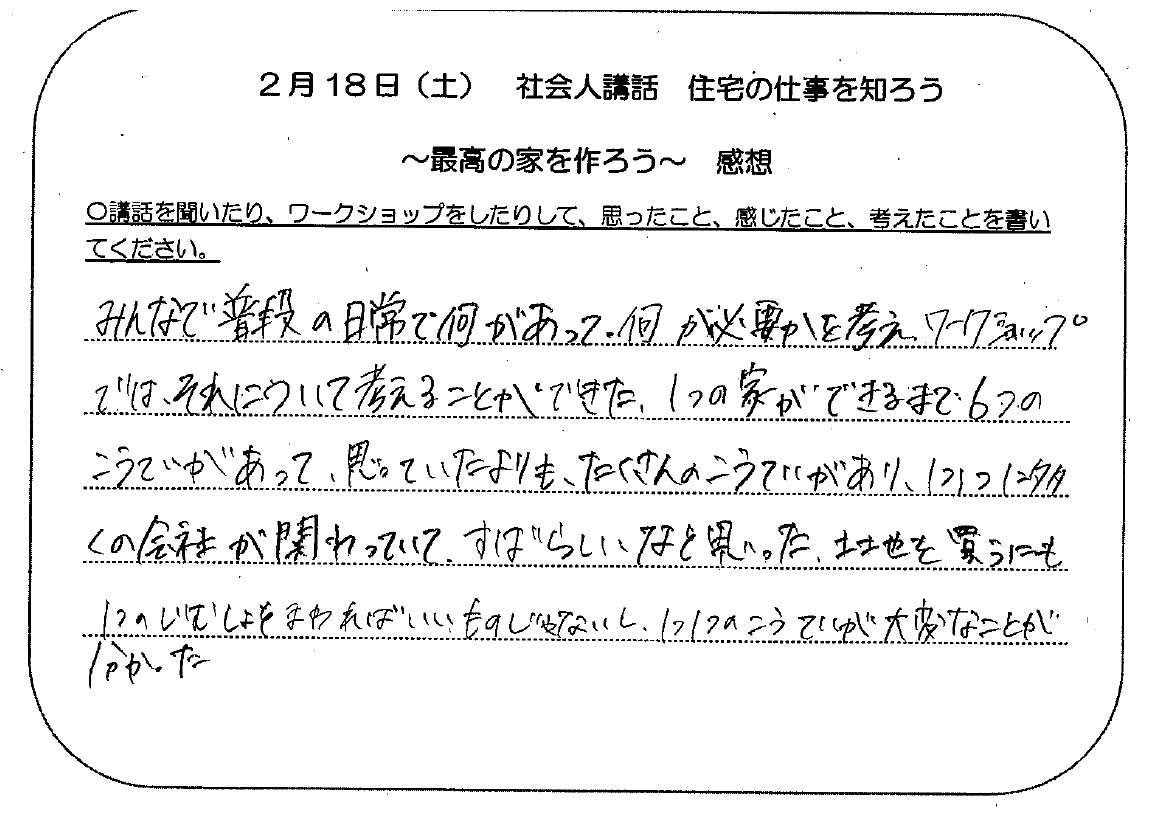 2月18日(土) 社会人講話 住宅の仕事を知ろう
~最高の家を作ろう~ 感想
○講話を聞いたり、ワークショップをしたりして、思ったこと、感じたこと、考えたことを書い
てください。
みんなで普段の日常で何があって、何が必要かを考え、ワークショップ
では、それについて考えることができた。1つの家ができるまで、6つの
こうていがあって、思っていたよりも、たくさんのこうていがあり、1つ1つに多
くの会社が関わっていて、すばらしいなと思いった。土地を買うにも
1つのじむしょをまわればいいものじゃないし、1つ1つのこうていが大変なことが
分かった